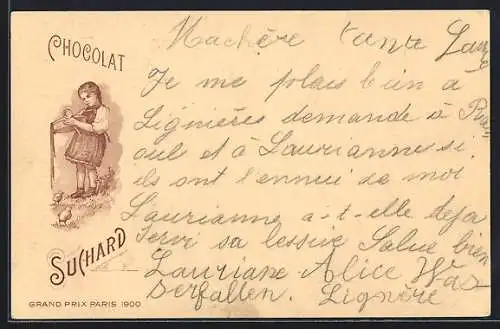 CHOCOLAT
SUCHARD
GRAND PRIX PARIS 1900
Machère tante
Je me plais bien a
Lignières demande à
oul et à Laurianne si
ils ont l'ennui de moi
Laurianne a-t-elle deja
servi sa lessive Salue bien
Lauriane Alice Was
serfallen. Lignère